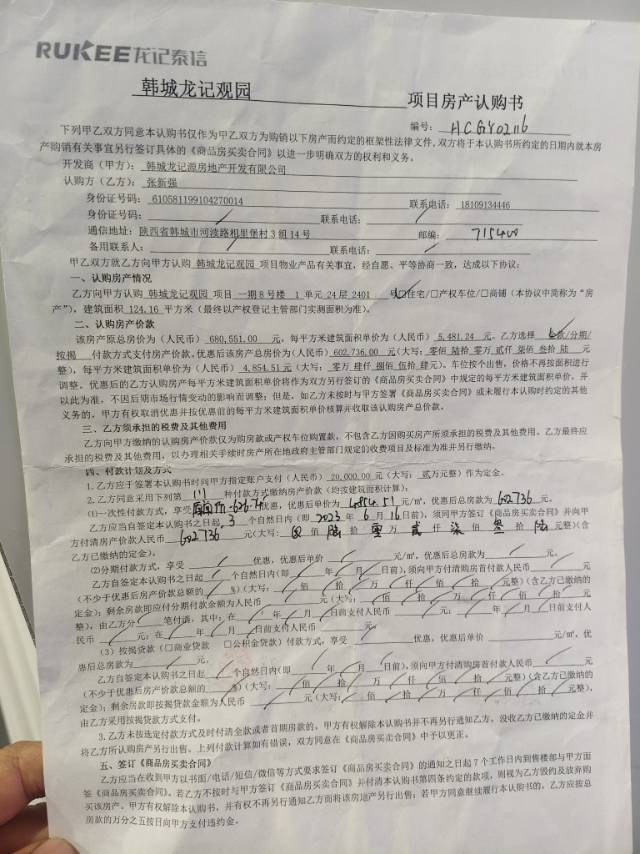 RUKEE龙记泰信
韩城龙记观园 项目房产认购书
编号：HCGY02116
下列甲乙双方同意本认购书仅作为甲乙双方为购销以下房产而约定的框架性法律文件,双方将于本认购书所约定的日期内就本房
产购销有关事宜另行签订具体的《商品房买卖合同》以进一步明确双方的权利和义务。
开发商（甲方）：韩城龙记源房地产开发有限公司
认购方（乙方）：张新强
身份证号码：610581199104270014 联系电话：18109134446
身份证号码：/ 联系电话：/
通信地址：陕西省韩城市河渎路相里堡村3组14号 邮编：715400
备用联系人：/ 联系电话：/
甲乙双方就乙方向甲方认购 韩城龙记观园 项目物业产品有关事宜，经自愿、平等协商一致，达成以下协议：
一、认购房产情况
乙方向甲方认购 韩城龙记观园 项目 一期8号楼 1 单元 24层 2401 住宅/□产权车位/□商铺（本协议中简称为“房
产”），建筑面积 124.16 平方米（最终以产权登记主管部门实测面积为准）。
二、认购房产价款
该房产原总房价为（人民币） 680,551.00 元，每平方米建筑面积单价为（人民币） 5,481.24 元。乙方选择 款/分期/
按揭 付款方式支付房产价款,优惠后该房产总房价为（人民币）602,736.00 元(大写：零佰 陆拾 零万 贰仟 柒佰 叁拾 陆 元
整），每平方米建筑面积单价为（人民币） 4,854.51元（大写： 零万 肆仟 捌佰 伍拾 肆元）。车位按个出售，价格不再按面积进行
调整。优惠后的乙方认购房产每平方米建筑面积单价将作为双方另行签订的《商品房买卖合同》中规定的每平方米建筑面积单价，并
以此为准，不因后期市场行情变动的影响而调整；但是，如乙方未按时与甲方签署《商品房买卖合同》或未履行本认购时约定的其他
义务的，甲方有权取消优惠并按优惠前的每平方米建筑面积单价核算并收取该认购房产总价款。
三、乙方须承担的税费及其他费用
乙方向甲方缴纳的认购房产价款仅为购房款或产权车位购置款，不包含乙方因购买房产所须承担的税费及其他费用。乙方最终应
承担的税费及其他费用，以办理相关手续时房产所在地政府主管部门规定的收费项目及标准为准并另行缴纳。
四、付款计划及方式
1.乙方应于签署本认购书时向甲方指定账户支付（人民币） 20,000.00 元（大写： 贰万元整）作为定金。
2.乙方同意采用下列第（1）种付款方式缴纳房产价款（均按建筑面积计算）：
⑴一次性付款方式，享受 -626.7元 优惠，优惠后单价为 4854.51 元/㎡，优惠后总房款为 602736 元。
乙方应当自签定本认购书之日起 3 个自然日内（即 2023 年 6 月 16日前），须同甲方签订《商品房买卖合同》并向甲
方付清房产价款人民币 602736 元(大写： 佰 陆 拾 零 万 贰 仟 柒 佰 叁 拾 陆 元整)(含
乙方已缴纳的定金）。
⑵分期付款方式，享受 / 优惠，优惠后单价 / 元/㎡，优惠后总房款为 / 元。
乙方自签定本认购书之日起 / 个自然日内(即 / 年 / 月 / 日前),须向甲方付清购房首付款人民币 / 元
(不少于优惠后房产价款总额的 / %)(大写： / 佰 / 拾 / 万 / 仟 / 佰 / 拾 / 元整)(含乙方已缴纳的
定金)；剩余房款即应付分期付款金额为人民币 / 元（大写： / 佰 / 拾 / 万 / 仟 / 佰 / 拾 / 元
整），由乙方分 / 笔付清，其中：在 / 年 / 月 / 日前支付人民币 / 元；在 / 年 / 月 / 日前支付人
民币 / 元；在 / 年 / 月 / 日前支付人民币 / 元。
（3）按揭贷款（□商业贷款 □公积金贷款）付款方式，享受 / 优惠，优惠后单价 / 元/㎡，优
惠后总房款为 / 元。
乙方自签定本认购书之日起 / 个自然日内(即 / 年 / 月 / 日前),须向甲方付清购房首付款人民币 / 元
(不少于优惠后房产价款总额的 / %)(大写： / 佰 / 拾 / 万 / 仟 / 佰 / 拾 / 元整)(含乙方已缴纳的
定金)；剩余房款即按揭贷款金额为人民币 / 元(大写： / 佰 / 拾 / 万 / 仟 / 佰 / 拾 / 元整)，
由乙方采用按揭贷款方式支付。
3.乙方未按选定付款方式及时付清全款或者首期房款的，甲方有权解除本认购书并不再另行通知乙方，没收乙方已缴纳的定金并
将乙方所认购房产另行出售。上列付款计算如有错误，双方同意在《商品房买卖合同》中予以更正。
五、签订《商品房买卖合同》
乙方应当在收到甲方以书面/电话/短信/微信等方式要求签订《商品房买卖合同》的通知之日起7个工作日内到售楼部与甲方面
签《商品房买卖合同》。若乙方不按时与甲方签订《商品房买卖合同》并付清本认购书第四条约定的款项，则视为乙方毁约及放弃购
买该房产。甲方有权解除本认购书，并有权不再另行通知乙方而将该房地产另行出售；若甲方同意继续履行本认购书的，乙方应按总
房款的万分之五按日向甲方支付违约金。